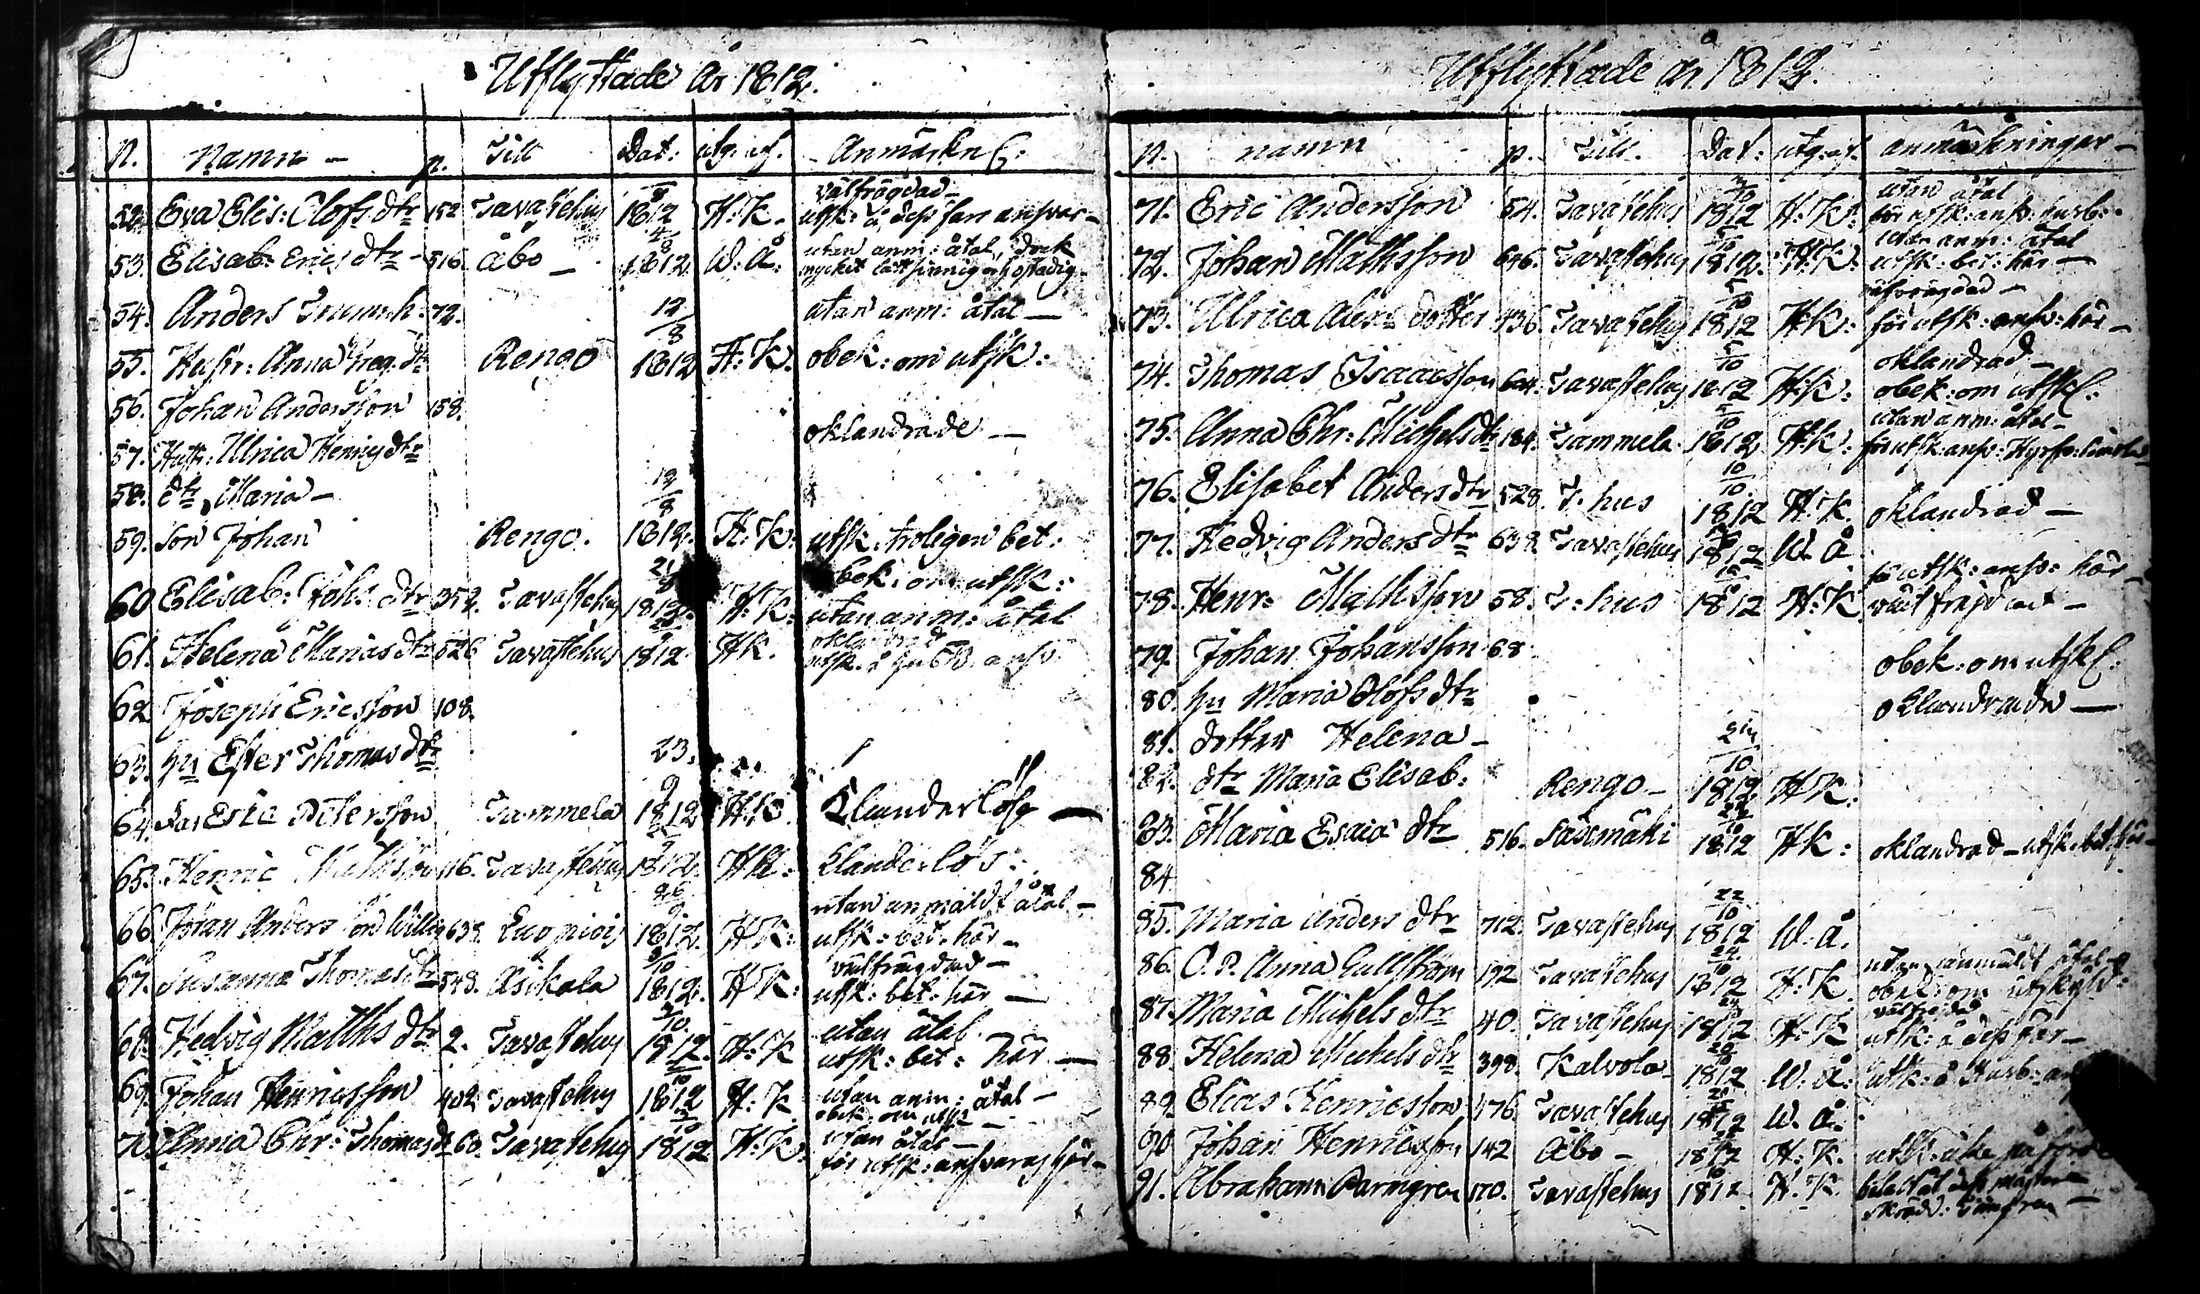 Utflyttade År 1812.
N. Namn — p. Till Dat: utg: af. Anmärkn:
välfrägdad —
52. Eva Elis: Olofs dtr 152 Tavastehus 1812 H: K. utsk: å dess farr ansvar —
utan anm: åtal, dock
53. Elisab: Erics dtr — 516. Åbo — 1812 W: Å: mycket lättsinnig och ostadig
54. Anders 72. 12/8 utan anm: åtal —
55. Hustr: Anna Greg: dr Rengo 1812 H: K. obek: om utsk:
56. Johan Andersson 158.
oklandrade —
57. Hustr: Ulrica Henrics dtr
58. dtr Maria — 12/8
59. Son Johan Rengo. 1812. H: K: utsk: troligen bet:
obek: om utsk:
60. Elisab: Johs dtr 352. Tavastehus 1812. H: K: utan anm: åtal
61. Helena Mariæ dtr 526 Tavastehus 1812. H K. utsk: å
62. Joseph Ericsson 108.
63. hu Ester Thomas dtr 23.
64. Eric Petersson Tammela 1812 H K Klanderlös —
65. Henric Mathsson 116. Tavastehus 1812. H K: klanderlös:
utan anmäldt åtal —
66. Johan Anders son Willig 638. Kuopio 1812. H K: utsk: bet: här —
3/10 välfrägdad —
67. Susanna Thomas dtr 548. Asikala 1812. H K: utsk: bet: här —
utan åtal
68. Hedvig Matths dtr 2. Tavastehus 1812. H: K utsk: bet: här —
utan anm: åtal —
69. Johan Henricsson 402 Tavastehus 1812 H: K obek: om utsk —
utan åtal —
70. Anna Chr: Thomas dr 60. Tavastehus 1812 H: K: för utsk: ansvaras här —
Utflyttade år 1812.
n. namn p. Till. Dat: utg: af. anmärkningar —
utan åtal
71. Eric Andersson 54. Tavastehus 1812 H: K: för utsk: ansv: husb:
utan anm: åtal
72. Johan Mathsson 646. Tavastehus 1812. H: K: utsk: bet: här —
73. Ulrica Alex: dotter 436. Tavastehus 1812 H K: för utsk: ansv: här —
oklandrad —
74. Thomas Isaacsson 624. Tavastehus 1812 H: K: obek: om utsk:
utan anm: åtal —
75. Anna Chr: Michels dtr 184. Tammela 1812 H: K: för utsk: ansv:
10/10
76. Elisabet Anders dtr 528. T: hus 1812 H: K. oklandrad —
77. Hedvig Anders dtr 638. Tavastehus 1812 W. Å
för utsk: ansv: här —
78. Henr: Mathsson 58. T: hus 1812 H: K välfrejdad —
79. Johan Johansson 68.
obek: om utsk:
80. hu Maria Olofs dtr
oklandrade —
81. dotter Helena —
82. dtr Maria Elisab: Rengo — 1812 H K:
83. Maria Esaiæ dtr 516. Sääsmäki 1812 H K: oklandrad — utsk: bet: här —
84.
22/10
85. Maria Anders dtr 712. Tavastehus 1812 W. Å.
utan anmäldt åtal
86. O. P. Anna Gullström 192 Tavastehus 1812 H: K. obek: om utskyld:
87. Maria Michels dtr 40. Tavastehus 1812 H: K utsk: å dess far —
88. Helena Michels dtr 398. Kalvola 1812 W. Å: utsk: å Husb:
89. Elias Henricsson 476. Tavastehus 1812 W. Å:
90. Johan Henricsson 142 Åbo — 1812 H: K.
91. Abraham Parmgren 170. Tavastehus 1812 H. K